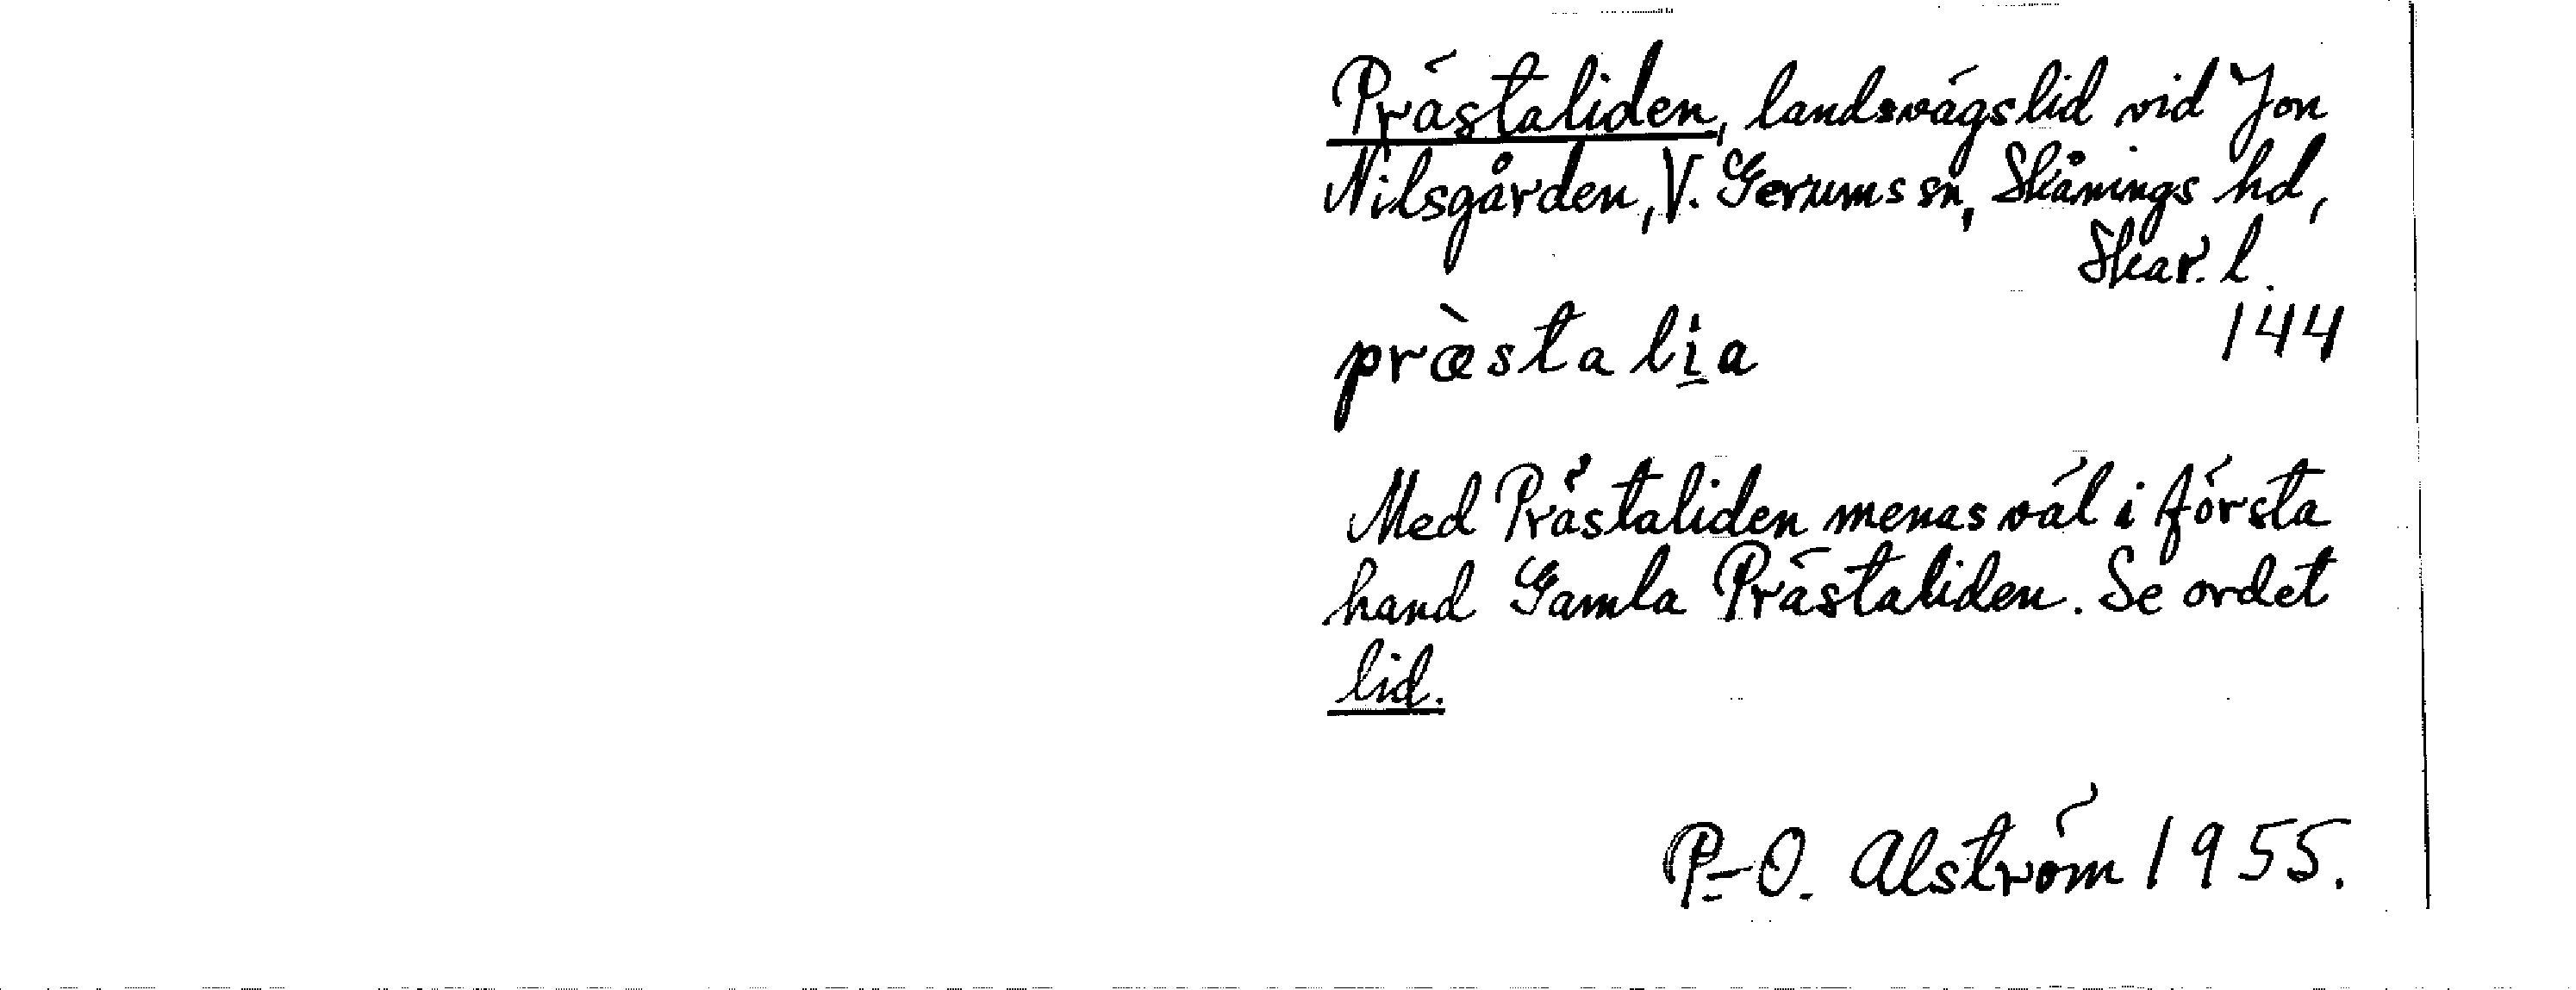 Prästaliden, landsvägslid vid Jon
Nilsgården, V. Gerums sn, Skånings hd,
Skar. l.
144
præ̀sta li̠a
Med Prästaliden menas väl i första
hand Gamla Prästaliden. Se ordet
lid.
P.-O. Alström 1955.